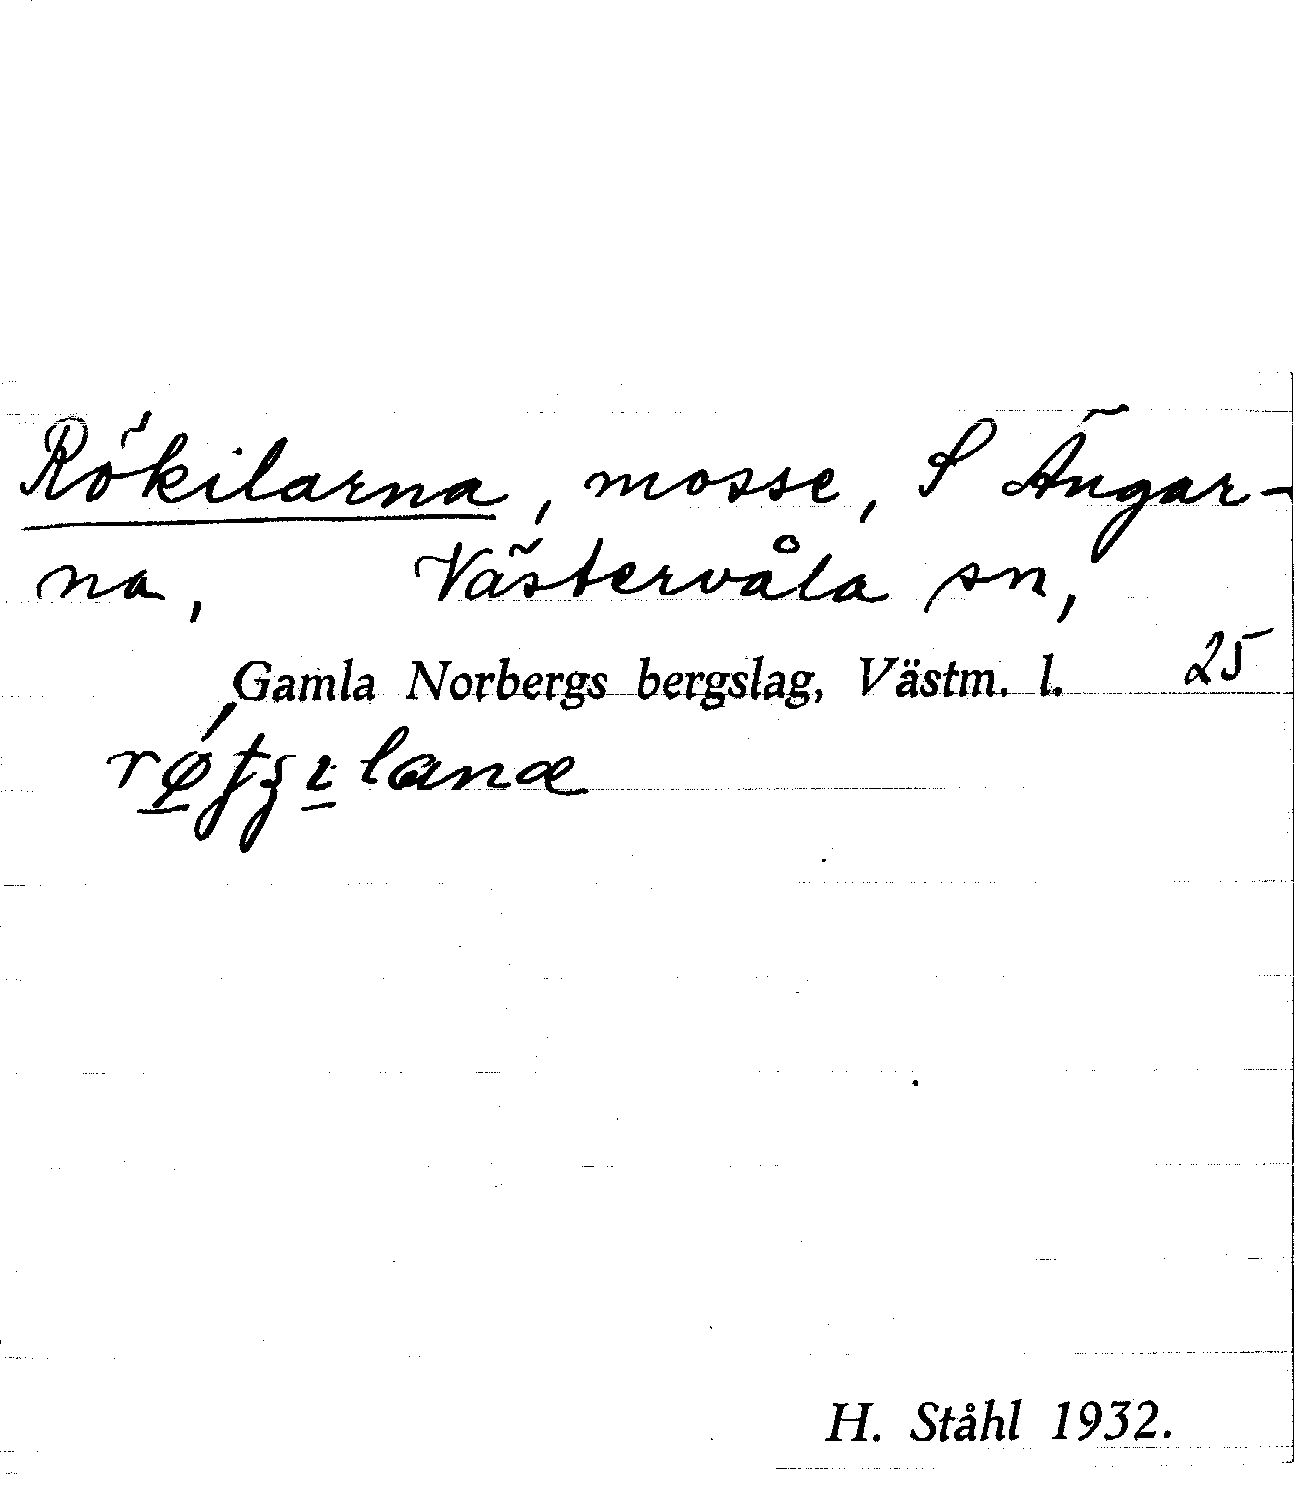 Rökilarna, mosse, S Ängar-
na, Västervåla sn,
Gamla Norbergs bergslag, Västm. l. 25
H. Ståhl 1932.